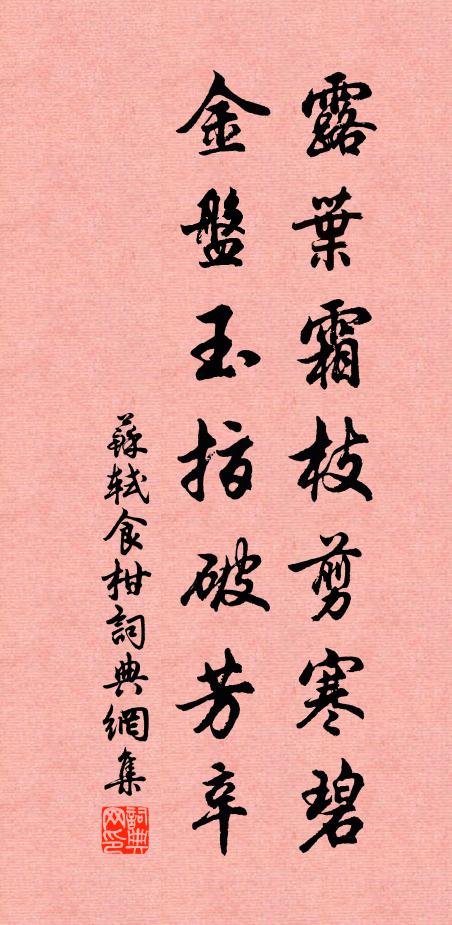 露葉霜枝剪寒碧
金盤玉指破芳辛
蘇軾食柑詞典網集
詞典
网印